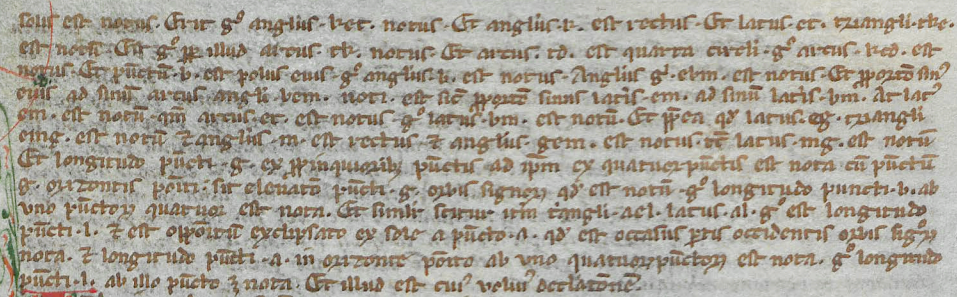 solus est notus. Erit gͦ angulus .k et. notus. Et anglus .k. est rectus. Et latus .et. trianguli .tke.
est notus. Est gͦ ꝓpter illud arcus. tk. notus. Et arcus. td. est quarta circuli. gͦ arcus .ked. est
notus. Et pūctū .b. est polus eius. gͦ anglus .k. est notus. Anglus gͦ .ebm. est notus. Et ꝓportō sinꝰ
eius ad sinū arcus angli .bem. noti. est sicͭ ꝓportō sinus lateris .em. ad sinū lateris .bm. At latꝰ
em. est notū. qm̄ arcus .et. est notus. gͦ latus .bm. est notū. Et ꝓpter ea qd latus. eg. triangli
emg. est notū. & anglus .m. est rectus. & anglus .gem. est notus. erit latus .mg. est notū
Et longitudo pūcti .g. ex ꝓpinquioribꝰ pūctis ad ipm ex quatuor pūctis est nota cū pūctū
g. orizontis poīti. sit elevatō pūcti .g. orbis signorū qd est notū. gͦ longitudo puncti .b. ab
uno pūctorū quatuor est nota. Et similr scitur itm triangli .ael. latus .al. gͦ est longitudo
pūcti .l. & est oppositū exclipsato ex sole a pūcto .a. qd est occasus partis occidentis orbis signorū
nota. & longitudo pūcti .a. in orizonte pōito ab uno quatuor pūctorū est nota. gͦ longitudo
pūcti .l. ab illo pūcto & nota. Et illud est cuiꝰ voluimꝰ declaratōnē.